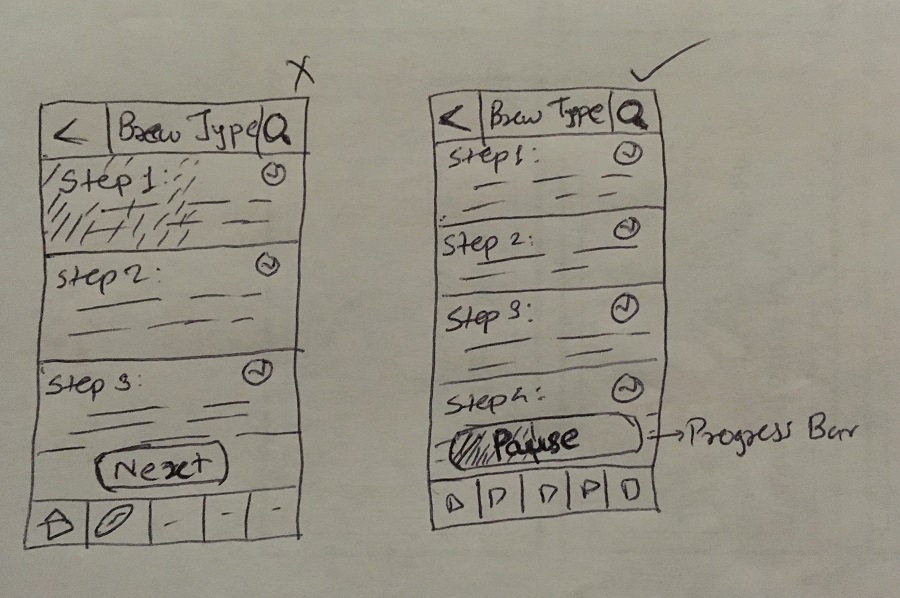 Brew Type
Step 1:
Step 2:
Step 3:
Next
Brew Type
Step 1:
Step 2:
Step 3:
Step 4:
Pause
Progress Bar